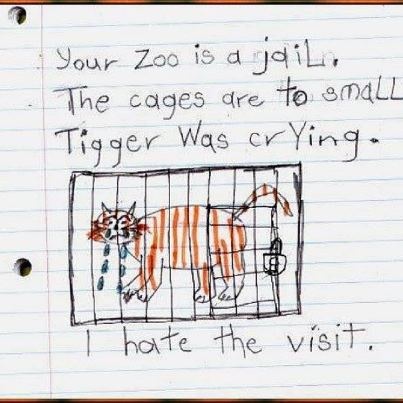 Your Zoo is a jail.
The cages are to small
Tigger Was crying.
I hate the visit.